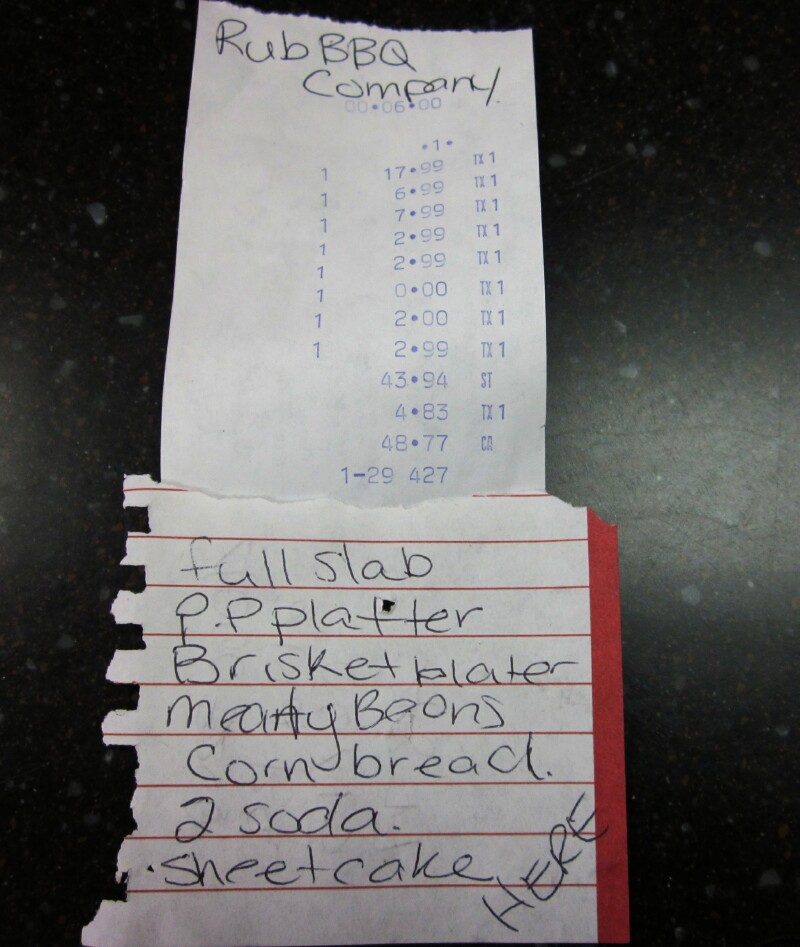 Rub BBQ
Company
00•06•00
•1•
1 17•99 TX 1
1 6•99 TX 1
1 7•99 TX 1
1 2•99 TX 1
1 2•99 TX 1
1 0•00 TX 1
1 2•00 TX 1
1 2•99 TX 1
43•94 ST
4•83 TX 1
48•77 CA
1-29 427
full slab
P.P platter
Brisket plater
meaty Beans
Corn bread.
2 soda.
sheetcake
HERE